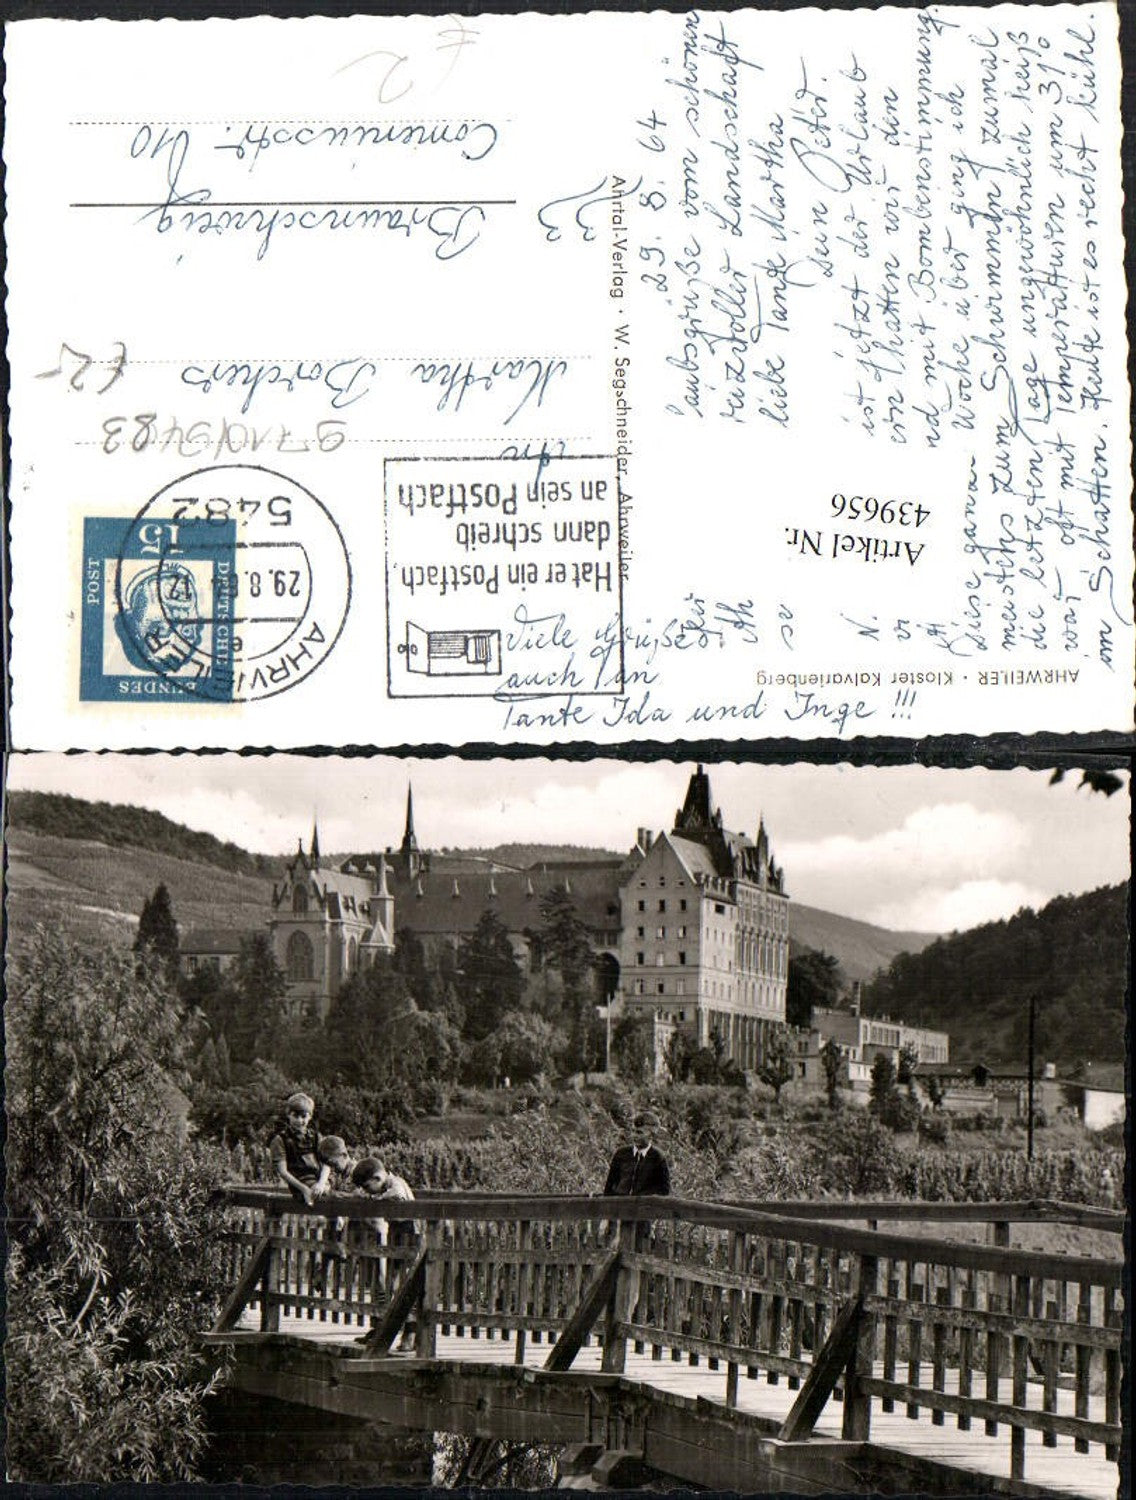 29. 8. 64
laubsgrüße vom schönen
reizvoller Landschaft
liebe Tante Martha
Dein Peter.
ist jetzt der Urlaub
hatten wir den
mit Bombenstimmung.
Woche über ging ich
meistens zum Schwimmen, zumal
die letzten Tage ungewöhnlich heiß
war oft mit Temperaturen um 31°
im Schatten. Heute ist es recht kühl.
Viele Grüße
auch an
Tante Ida und Inge !!!
Artikel Nr.
439656
AHRWEILER · Kloster Kalvarienberg
Ahrtal-Verlag · W. Segschneider, Ahrweiler
Hat er ein Postfach,
dann schreib
an sein Postfach
5482
29.8.64-12
AHRWEILER
DEUTSCHE
BUNDES
POST
15
9710/9483
€2-
An
Martha Borchers
33
Braunschweig
Comeniusstr. 10
€ 2